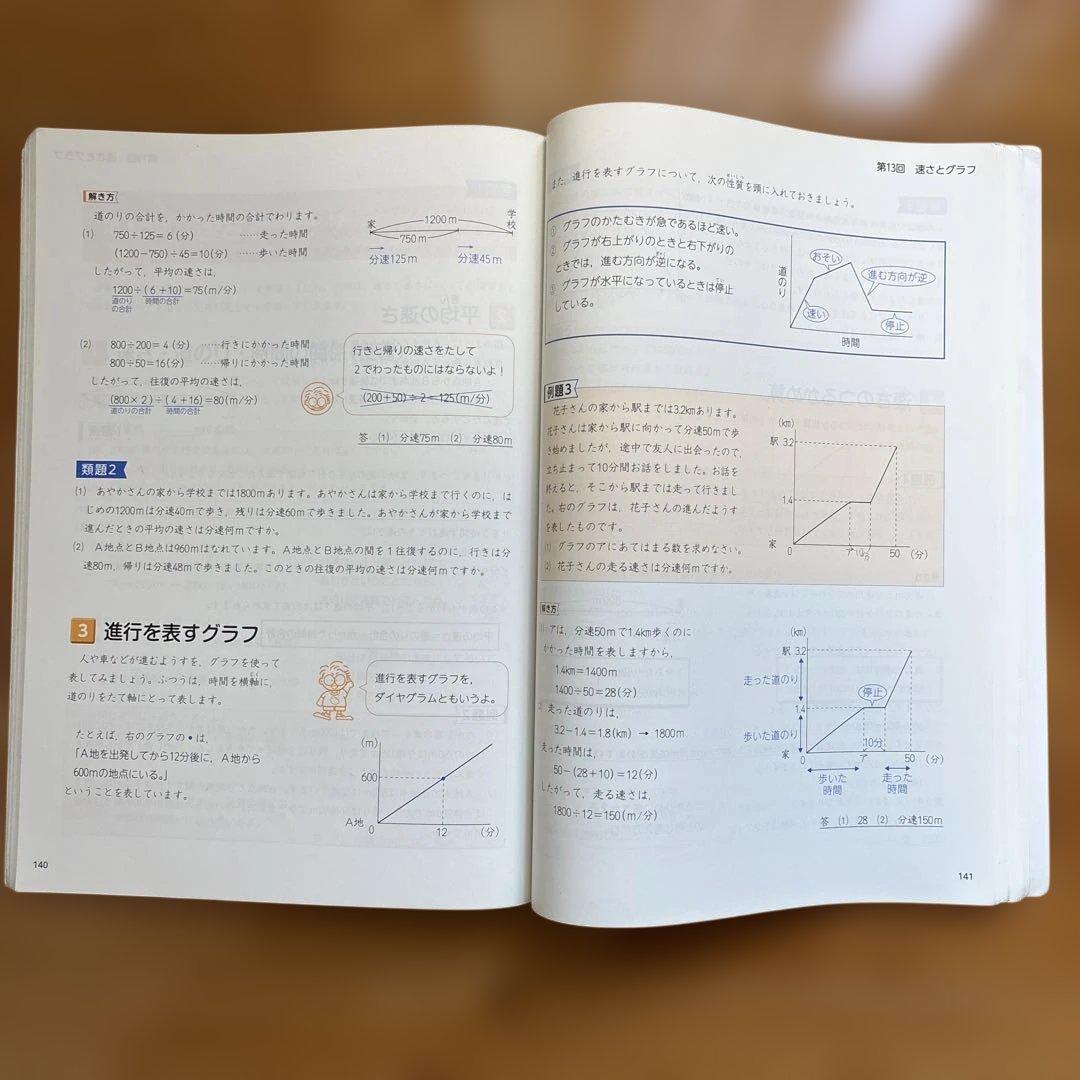 解き方
道のりの合計を，かかった時間の合計でわります。
(1) 750÷125＝6(分) ……走った時間
(1200−750)÷45＝10(分) ……歩いた時間
したがって，平均の速さは，
1200÷(6＋10)＝75(m/分)
道のりの合計 時間の合計
家 1200m 学校
750m
分速125m 分速45m
(2) 800÷200＝4(分) ……行きにかかった時間
800÷50＝16(分) ……帰りにかかった時間
したがって，往復の平均の速さは，
(800×2)÷(4＋16)＝80(m/分)
道のりの合計 時間の合計
行きと帰りの速さをたして
2でわったものにはならないよ！
(200＋50)÷2＝125(m/分)
答 (1) 分速75m (2) 分速80m
類題2
(1) あやかさんの家から学校までは1800mあります。あやかさんは家から学校まで行くのに，は
じめの1200mは分速40mで歩き，残りは分速60mで歩きました。あやかさんが家から学校まで
進んだときの平均の速さは分速何mですか。
(2) A地点とB地点は960mはなれています。A地点とB地点の間を1往復するのに，行きは分
速80m，帰りは分速48mで歩きました。このときの往復の平均の速さは分速何mですか。
3 進行を表すグラフ
人や車などが進むようすを，グラフを使って
表してみましょう。ふつうは，時間を横軸に，
道のりをたて軸にとって表します。
進行を表すグラフを，
ダイヤグラムともいうよ。
たとえば，右のグラフの•は，
「A地を出発してから12分後に，A地から
600mの地点にいる。」
ということを表しています。
(m)
600
A地 0 12 (分)
140
第13回 速さとグラフ
また，進行を表すグラフについて，次の性質を頭に入れておきましょう。
① グラフのかたむきが急であるほど速い。
② グラフが右上がりのときと右下がりの
ときでは，進む方向が逆になる。
③ グラフが水平になっているときは停止
している。
道のり
おそい
進む方向が逆
速い
停止
時間
例題3
花子さんの家から駅までは3.2kmあります。
花子さんは家から駅に向かって分速50mで歩
き始めましたが，途中で友人に出会ったので，
立ち止まって10分間お話をしました。お話を
終えると，そこから駅までは走って行きまし
た。右のグラフは，花子さんの進んだようす
を表したものです。
(1) グラフのアにあてはまる数を求めなさい。
(2) 花子さんの走る速さは分速何mですか。
(km)
駅 3.2
1.4
家 0 ア 50 (分)
解き方
(1) アは，分速50mで1.4km歩くのに
かかった時間を表しますから，
1.4km＝1400m
1400÷50＝28(分)
(2) 走った道のりは，
3.2−1.4＝1.8(km) → 1800m
走った時間は，
50−(28＋10)＝12(分)
したがって，走る速さは，
1800÷12＝150(m/分)
(km)
駅 3.2
走った道のり
停止
1.4
歩いた道のり
10分
家 0 ア 50 (分)
歩いた時間 走った時間
答 (1) 28 (2) 分速150m
141